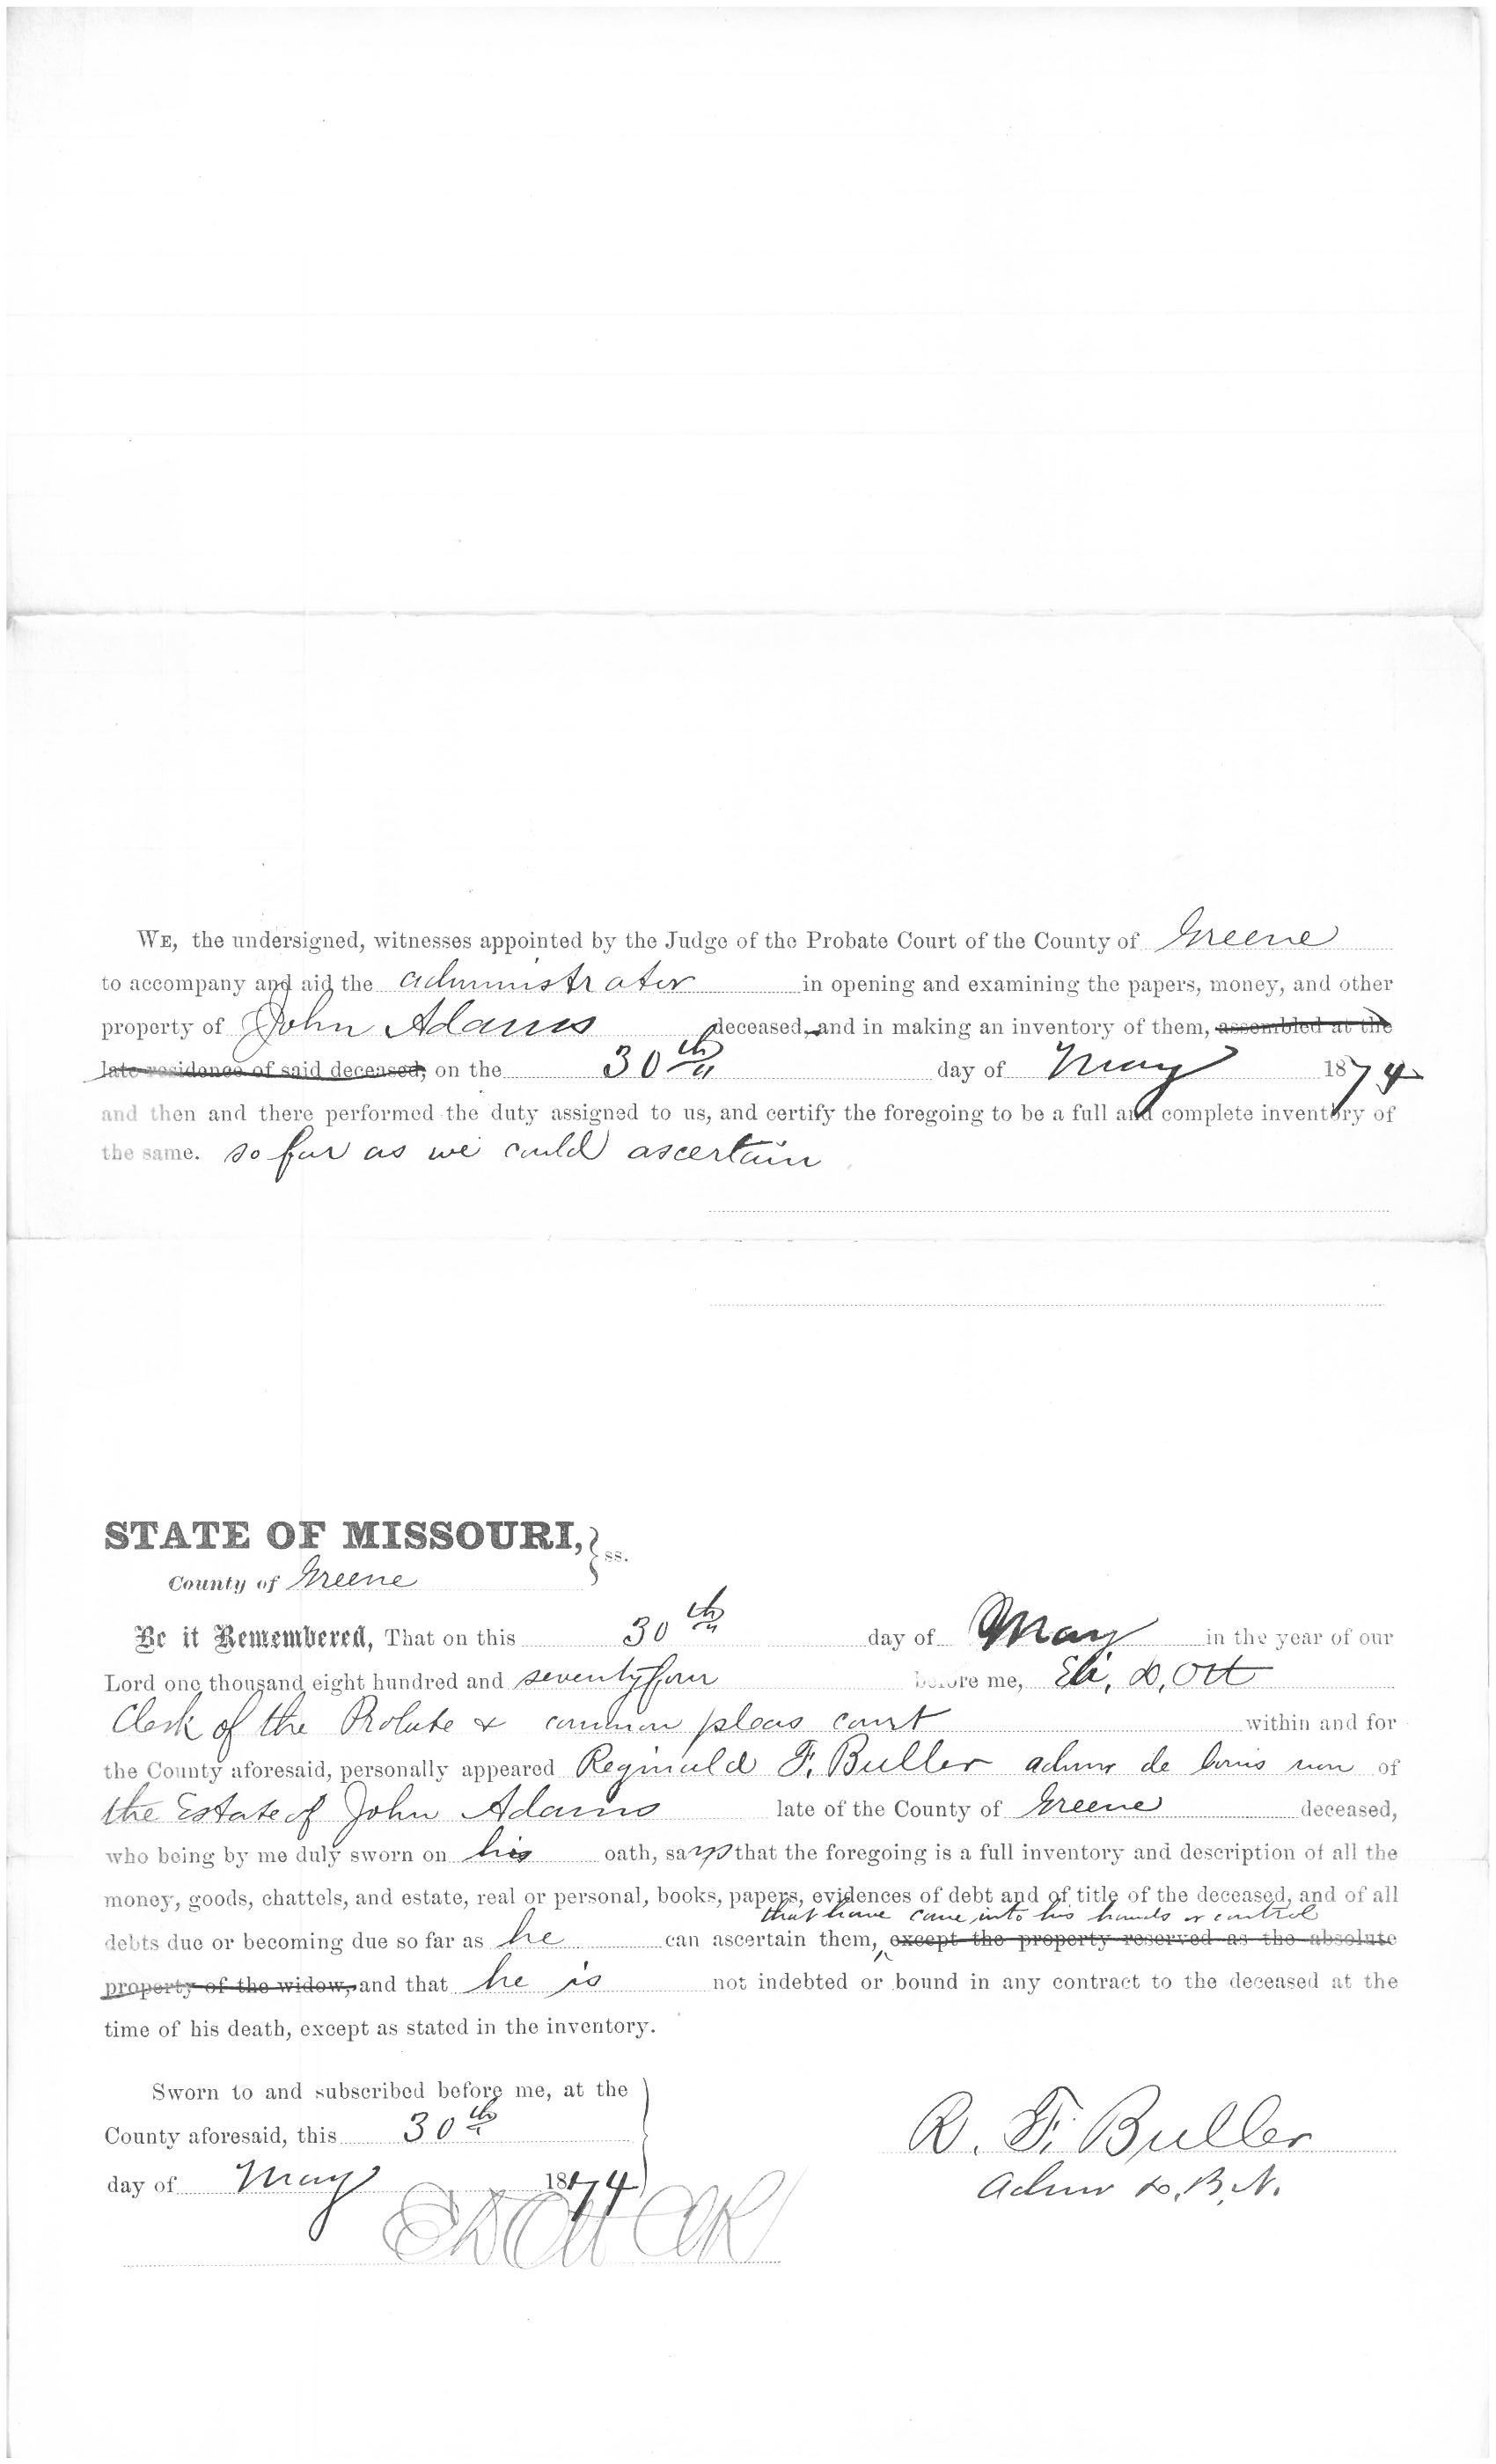 WE, the undersigned, witnesses appointed by the Judge of the Probate Court of the County of Greene
to accompany and aid the administrator in opening and examining the papers, money, and other
property of John Adams deceased, and in making an inventory of them, assembled at the
late residence of said deceased, on the 30th day of May 1874
and then and there performed the duty assigned to us, and certify the foregoing to be a full and complete inventory of
the same. so far as we could ascertain
STATE OF MISSOURI, } ss.
County of Greene
Be it Remembered, That on this 30th day of May in the year of our
Lord one thousand eight hundred and seventy four before me, Eli, D, Ott
Clerk of the Probate & common pleas court within and for
the County aforesaid, personally appeared Reginald F. Buller admr de bonis non of
the Estate of John Adams late of the County of Greene deceased,
who being by me duly sworn on his oath, says that the foregoing is a full inventory and description of all the
money, goods, chattels, and estate, real or personal, books, papers, evidences of debt and of title of the deceased, and of all
that have come into his hands or control
debts due or becoming due so far as he can ascertain them, except the property reserved as the absolute
property of the widow, and that he is not indebted or bound in any contract to the deceased at the
time of his death, except as stated in the inventory.
Sworn to and subscribed before me, at the
County aforesaid, this 30th
day of May 1874
R. F. Buller
Admr D. B. N.
E D Ott Clk